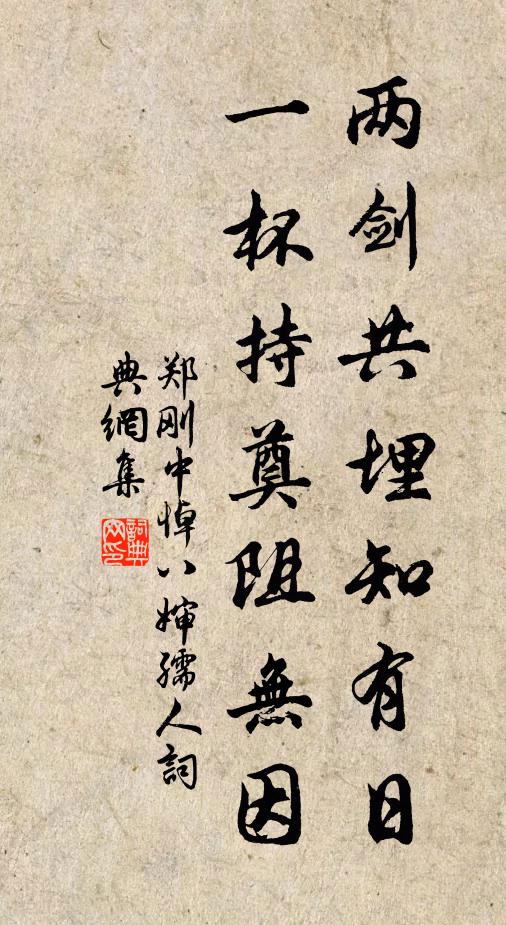 两剑共埋知有日
一杯持奠阻無因
郑刚中悼八婶孺人詞
典網集
詞典
网印